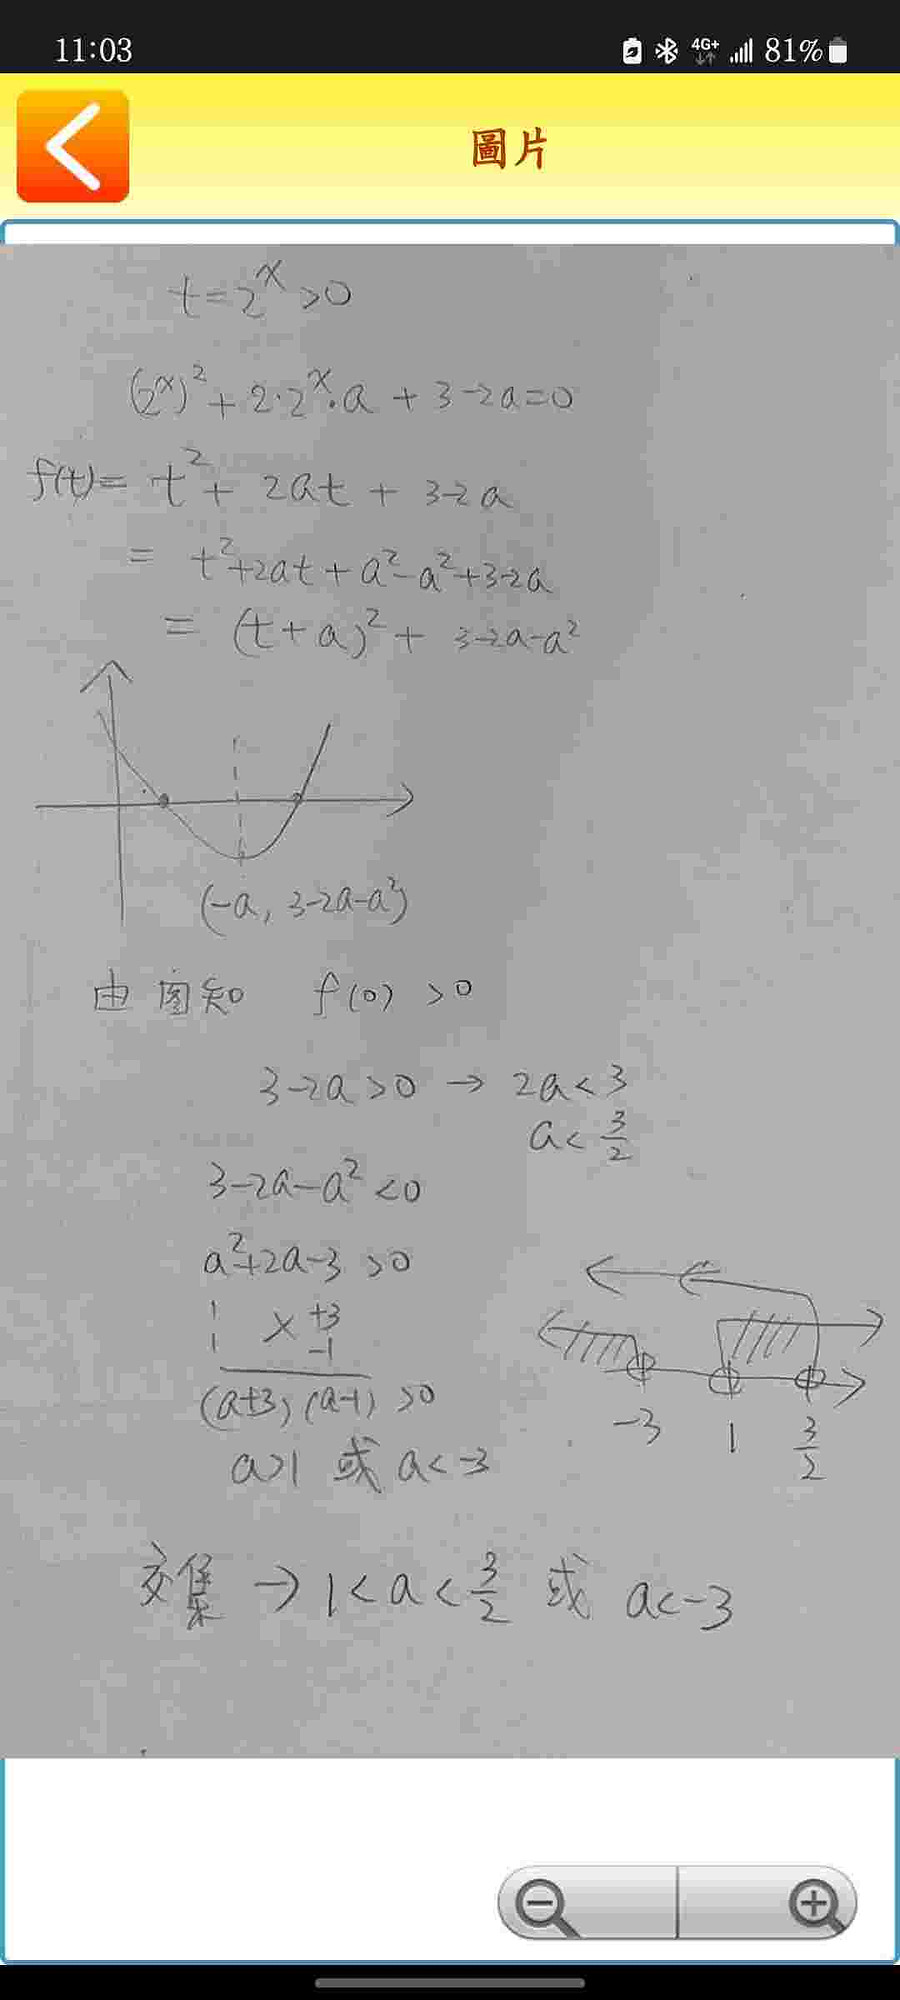 11:03 4G+ 81%
圖片
t=2^x>0
(2^x)^2+2·2^x·a+3-2a=0
f(t)=t^2+2at+3-2a
=t^2+2at+a^2-a^2+3-2a
=(t+a)^2+3-2a-a^2
(-a, 3-2a-a^2)
由图知 f(0)>0
3-2a>0→2a<3
a<3/2
3-2a-a^2<0
a^2+2a-3>0
1 +3
1 × -1
(a+3)(a-1)>0
a>1 或 a<-3
-3 1 3/2
交集→1<a<3/2 或 a<-3